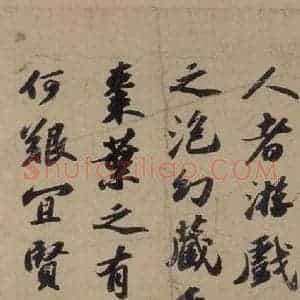 人者游戲
之泡幻藏
棗葉之有
何艱宜賢
Shufaziliao.COM